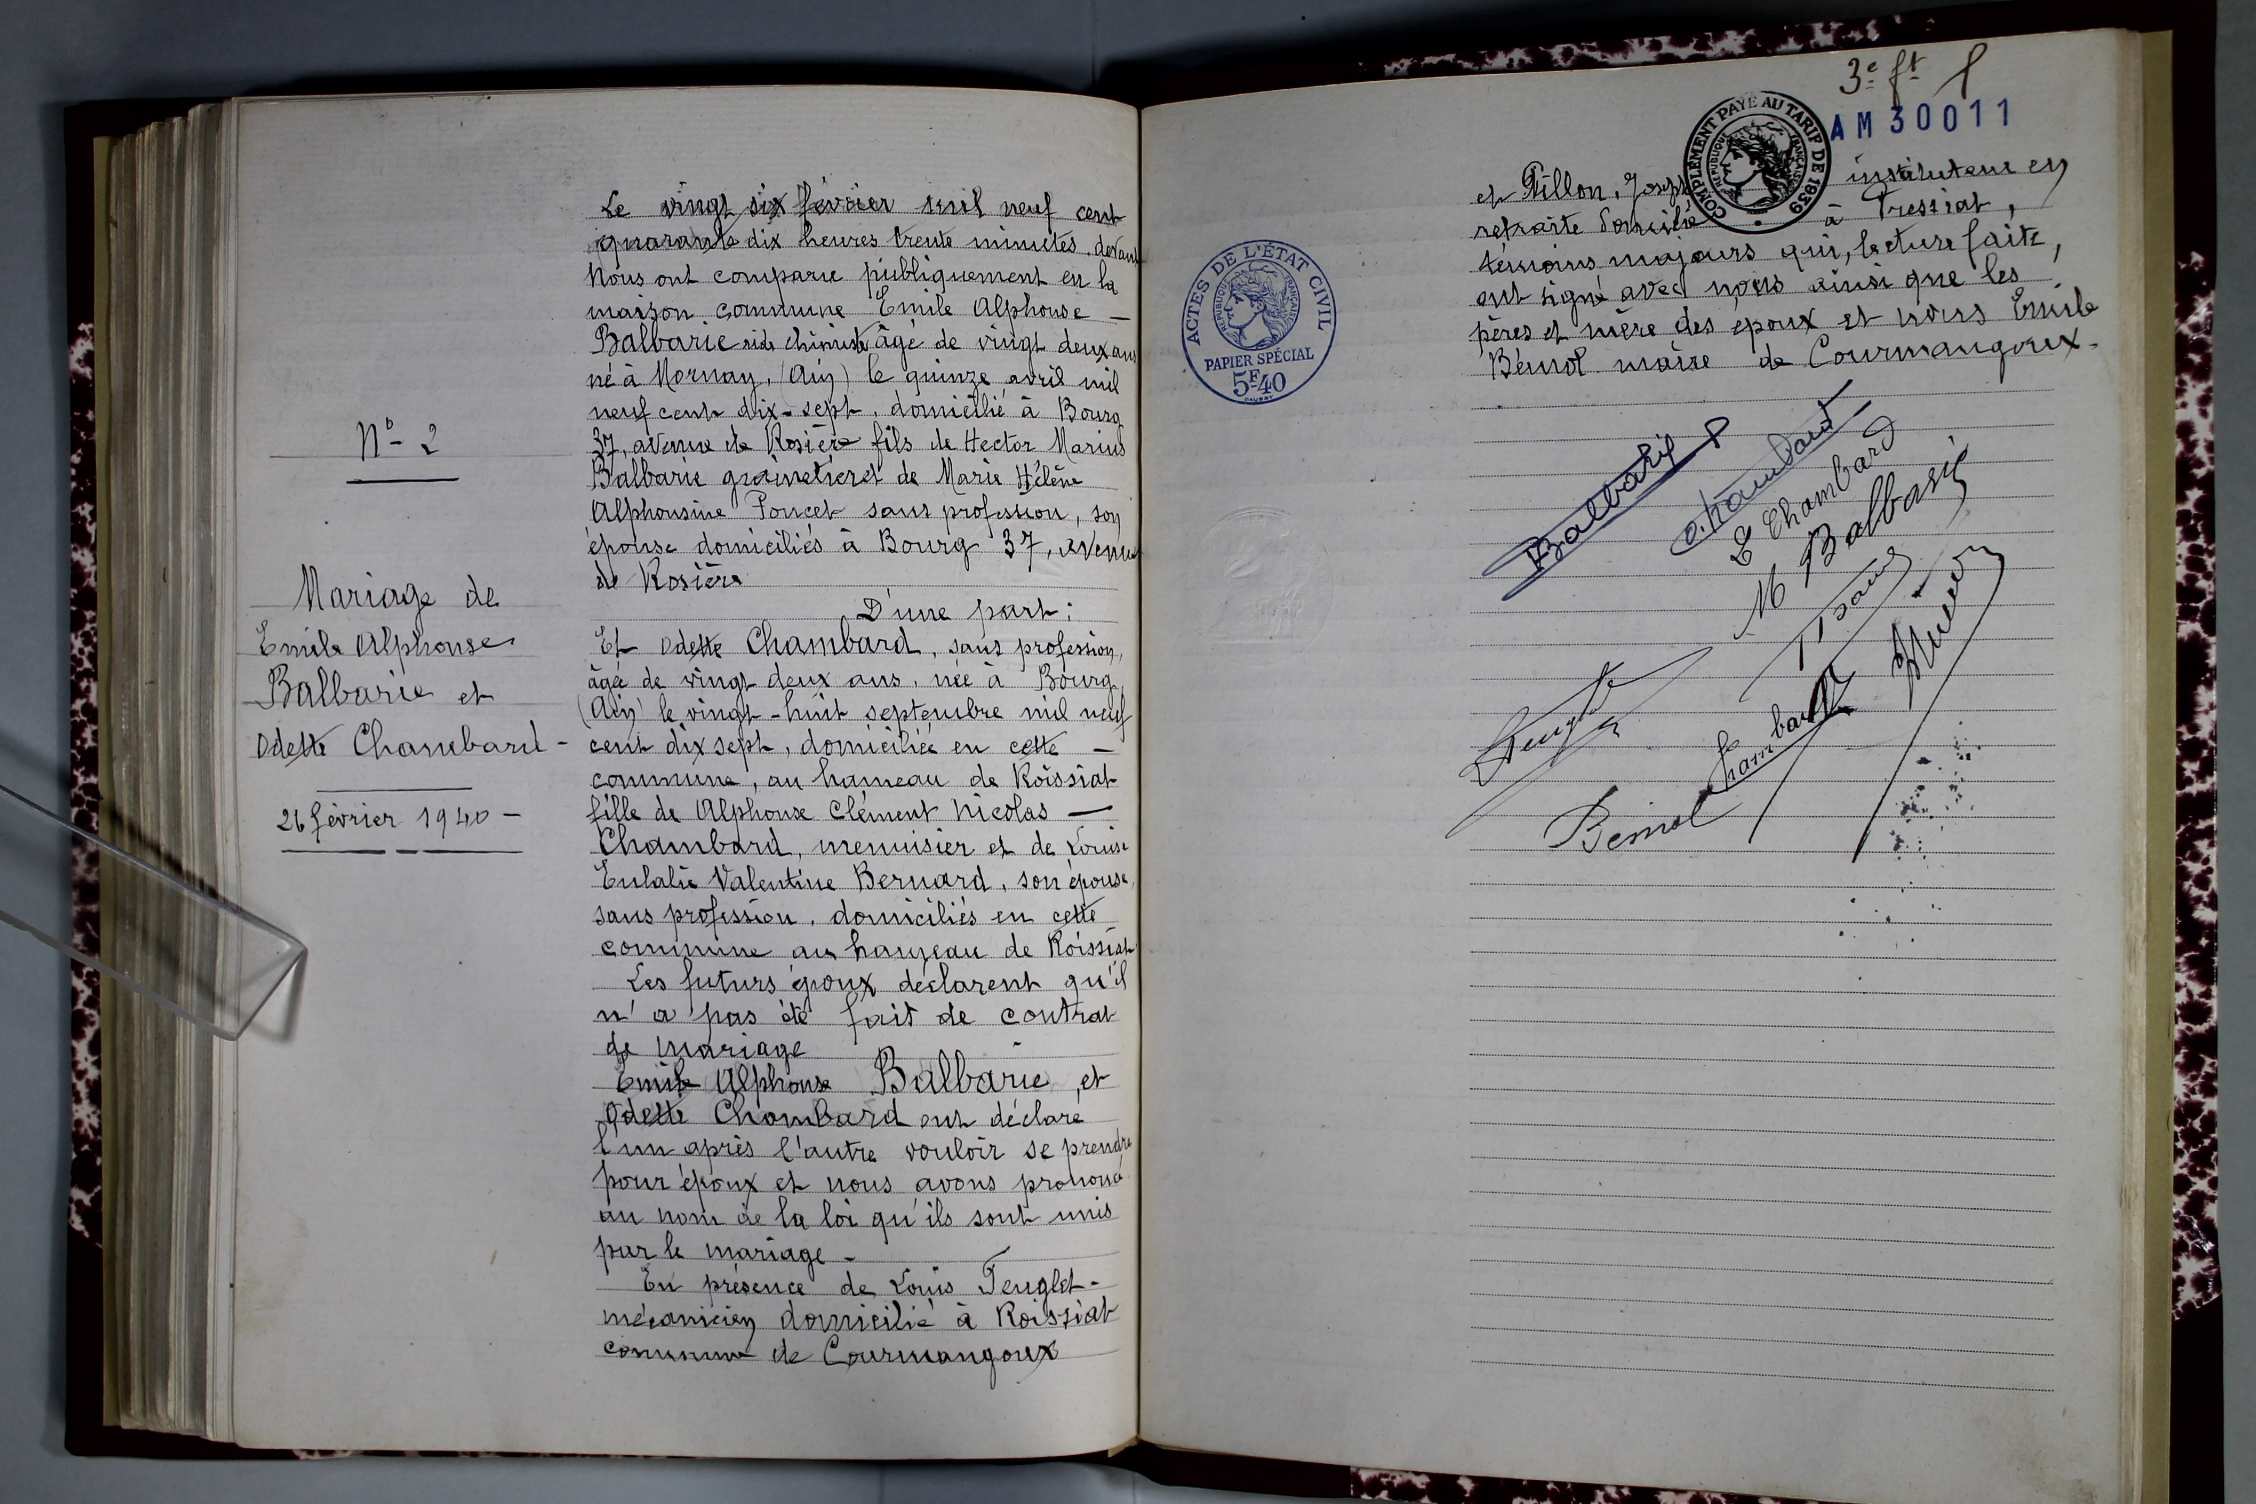 N° 2
Mariage de
Emile Alphonse
Balbarie et
Odette Chambard -
26 février 1940 -
Le vingt six février mil neuf cent
quarante dix heures trente minutes, devant
Nous ont comparu publiquement en la
maison commune Emile Alphonse —
Balbarie aide chimiste âgé de vingt deux ans
né à Mornay, (Ain) le quinze avril mil
neuf cent dix-sept, domicilié à Bourg
37, avenue de Rosière fils de Hector Marius
Balbarie grainetier et de Marie Hélène
Alphonsine Poncet sans profession, son
épouse domiciliés à Bourg 37, avenue
de Rosière
D'une part :
Et Odette Chambard, sans profession,
âgée de vingt deux ans, née à Bourg
(Ain) le vingt-huit septembre mil neuf
cent dix sept, domiciliée en cette —
commune, au hameau de Roissiat
fille de Alphonse Clément Nicolas —
Chambard, menuisier et de Louise
Eulalie Valentine Bernard, son épouse,
sans profession, domiciliés en cette
commune au hameau de Roissiat
Les futurs époux déclarent qu'il
n'a pas été fait de contrat
de mariage
Emile Alphonse Balbarie, et
Odette Chambard ont déclaré
l'un après l'autre vouloir se prendre
pour époux et nous avons prononcé
au nom de la loi qu'ils sont unis
par le mariage -
En présence de Louis Tenglet -
mécanicien domicilié à Roissiat
commune de Courmangoux
3e ft
AM30011
COMPLÉMENT PAYÉ AU TARIF DE 1939
RÉPUBLIQUE FRANÇAISE
ACTES DE L'ÉTAT CIVIL
RÉPUBLIQUE FRANÇAISE
PAPIER SPÉCIAL
5F40
et Pillon, Joseph instituteur en
retraite domicilié à Pressiat,
témoins majeurs qui, lecture faite,
ont signé avec nous ainsi que les
pères et mère des époux et nous Emile
Bémol maire de Courmangoux -
Balbarie
O. Chambard
E Chambard
M Balbarie
Tenglet
Chambard
Bémol